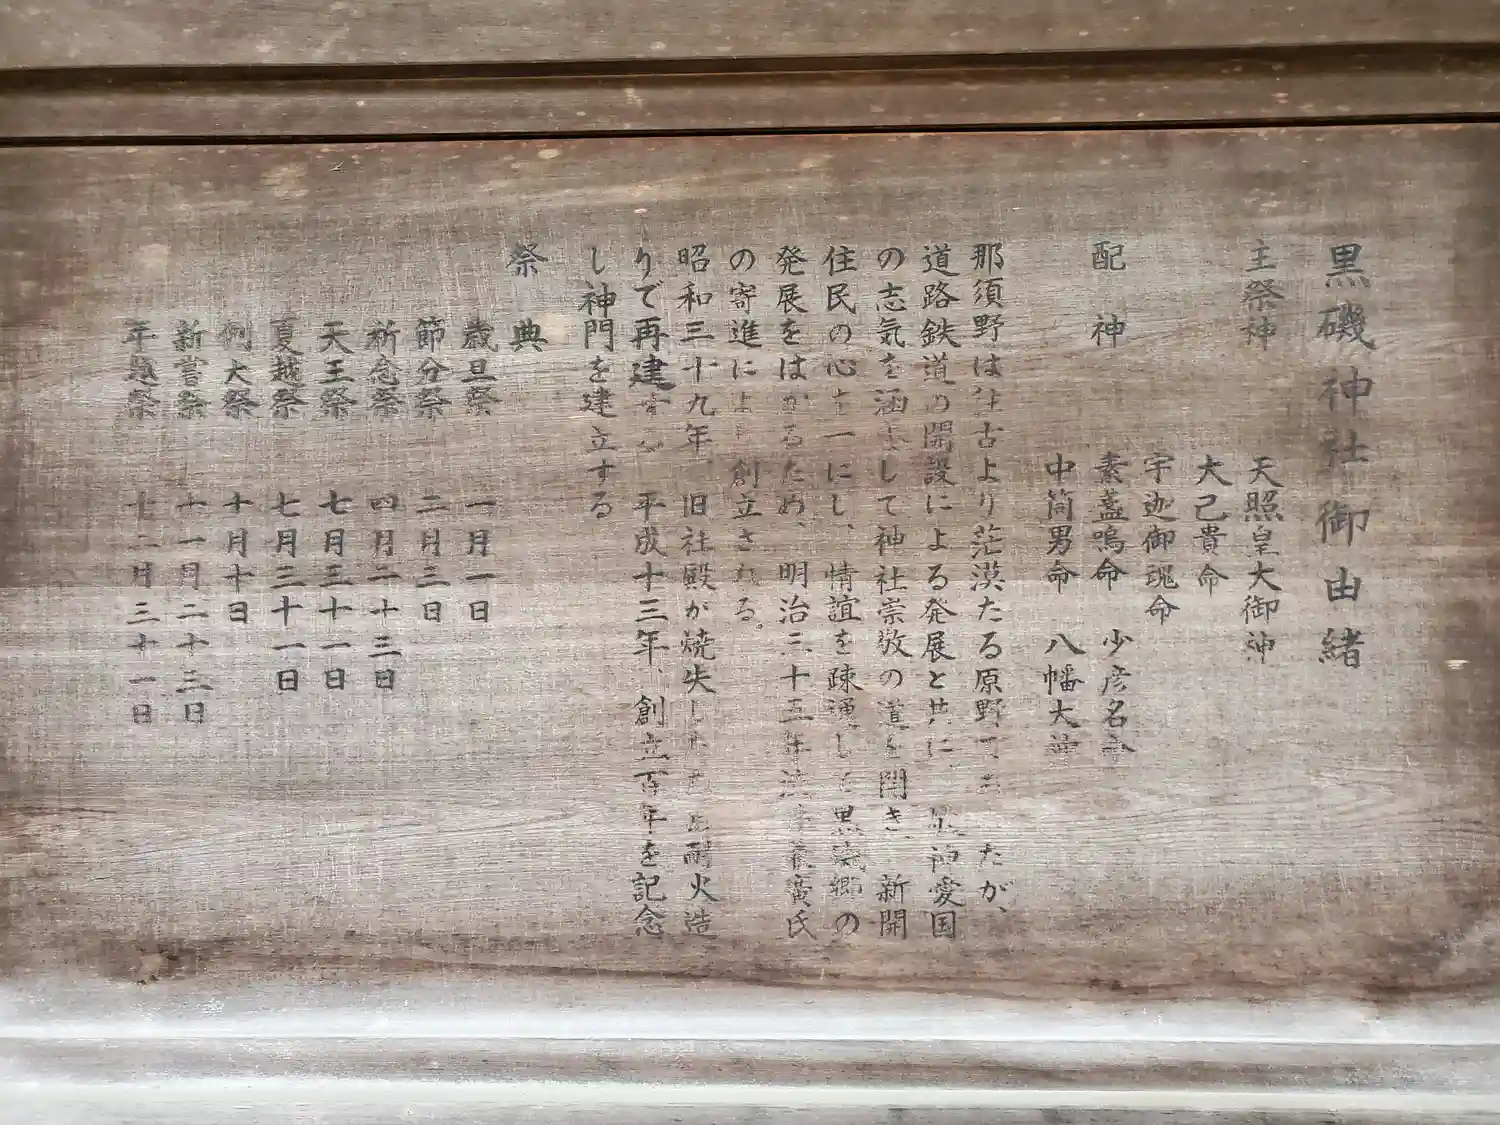 黒磯神社御由緒
主祭神 天照皇大御神
大己貴命
宇迦御魂命
配神 素盞嗚命 少彦名命
中筒男命 八幡大神
那須野は往古より茫漠たる原野であったが、
道路鉄道の開設による発展と共に 敬神愛国
の志気を涵養して神社崇敬の道を開き 新開
住民の心を一にし、情誼を疎通して黒磯郷の
発展をはかるため、明治三十五年 氏
の寄進により創立される。
昭和三十九年 旧社殿が焼失したため耐火造
りで再建する 平成十三年、創立百年を記念
し神門を建立する
祭典
歳旦祭 一月一日
節分祭 二月三日
祈念祭 四月二十三日
天王祭 七月三十一日
夏越祭 七月三十一日
例大祭 十月十日
新嘗祭 十一月二十三日
年越祭 十二月三十一日